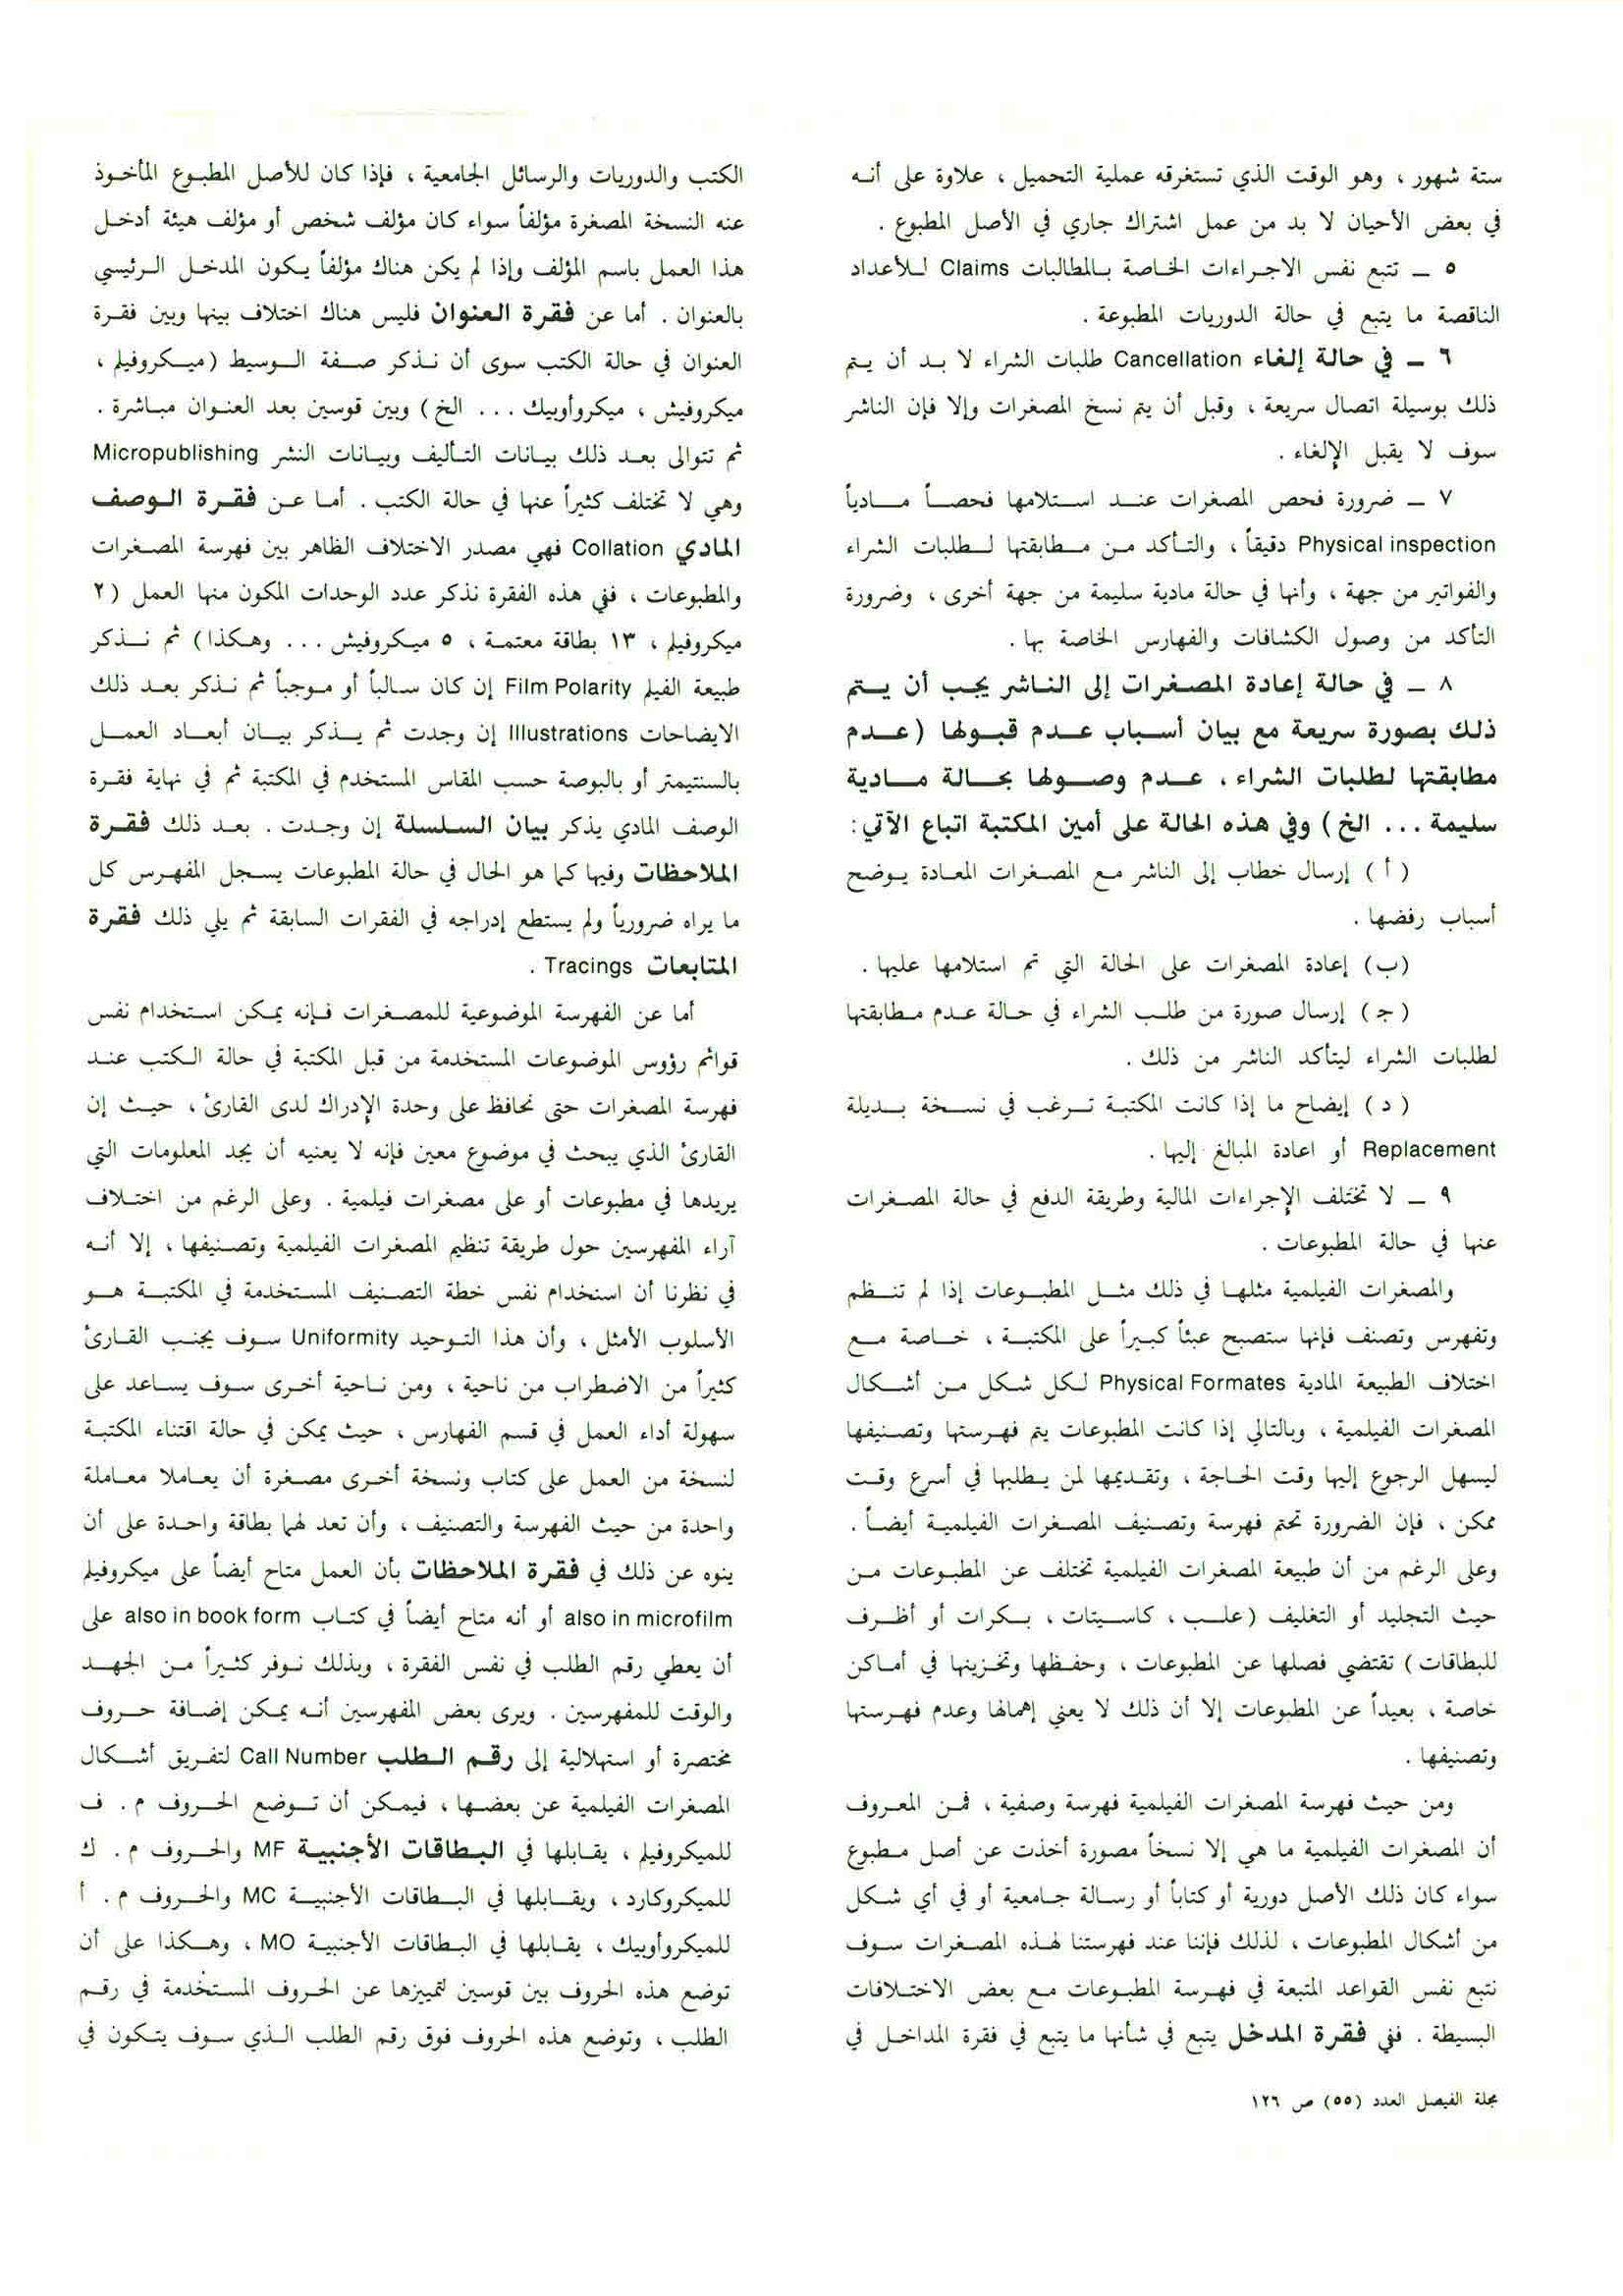 ستة شهور ، وهو الوقت الذي تستغرقه عملية التحميل ، علاوة على أنه
في بعض الأحيان لا بد من عمل اشتراك جاري في الأصل المطبوع .
٥ ــ تتبع نفس الاجراءات الخاصة بالمطالبات Claims للأعداد
الناقصة ما يتبع في حالة الدوريات المطبوعة .
٦ ــ في حالة إلغاء Cancellation طلبات الشراء لا بد أن يتم
ذلك بوسيلة اتصال سريعة ، وقبل أن يتم نسخ المصغرات وإلا فإن الناشر
سوف لا يقبل الإلغاء .
٧ ــ ضرورة فحص المصغرات عند استلامها فحصاً مادياً
Physical inspection دقيقاً ، والتأكد من مطابقتها لطلبات الشراء
والفواتير من جهة ، وأنها في حالة مادية سليمة من جهة أخرى ، وضرورة
التأكد من وصول الكشافات والفهارس الخاصة بها .
٨ ــ في حالة إعادة المصغرات إلى الناشر يجب أن يتم
ذلك بصورة سريعة مع بيان أسباب عدم قبولها ( عدم
مطابقتها لطلبات الشراء ، عدم وصولها بحالة مادية
سليمة ... الخ ) وفي هذه الحالة على أمين المكتبة اتباع الآتي :
( أ ) إرسال خطاب إلى الناشر مع المصغرات المعادة يوضح
أسباب رفضها .
(ب) إعادة المصغرات على الحالة التي تم استلامها عليها .
( ج ) إرسال صورة من طلب الشراء في حالة عدم مطابقتها
لطلبات الشراء ليتأكد الناشر من ذلك .
( د ) إيضاح ما إذا كانت المكتبة ترغب في نسخة بديلة
Replacement أو اعادة المبالغ إليها .
٩ ــ لا تختلف الإجراءات المالية وطريقة الدفع في حالة المصغرات
عنها في حالة المطبوعات .
والمصغرات الفيلمية مثلها في ذلك مثل المطبوعات إذا لم تنظم
وتفهرس وتصنف فإنها ستصبح عبئاً كبيراً على المكتبة ، خاصة مع
اختلاف الطبيعة المادية Physical Formates لكل شكل من أشكال
المصغرات الفيلمية ، وبالتالي إذا كانت المطبوعات يتم فهرستها وتصنيفها
ليسهل الرجوع إليها وقت الحاجة ، وتقديمها لمن يطلبها في أسرع وقت
ممكن ، فإن الضرورة تحتم فهرسة وتصنيف المصغرات الفيلمية أيضاً .
وعلى الرغم من أن طبيعة المصغرات الفيلمية تختلف عن المطبوعات من
حيث التجليد أو التغليف (علب ، كاسيتات ، بكرات أو أظرف
للبطاقات ) تقتضي فصلها عن المطبوعات ، وحفظها وتخزينها في أماكن
خاصة ، بعيداً عن المطبوعات إلا أن ذلك لا يعني إهمالها وعدم فهرستها
وتصنيفها .
ومن حيث فهرسة المصغرات الفيلمية فهرسة وصفية ، فمن المعروف
أن المصغرات الفيلمية ما هي إلا نسخاً مصورة أخذت عن أصل مطبوع
سواء كان ذلك الأصل دورية أو كتاباً أو رسالة جامعية أو في أي شكل
من أشكال المطبوعات ، لذلك فإننا عند فهرستنا لهذه المصغرات سوف
نتبع نفس القواعد المتبعة في فهرسة المطبوعات مع بعض الاختلافات
البسيطة . ففي فقرة المدخل يتبع في شأنها ما يتبع في فقرة المداخل في
الكتب والدوريات والرسائل الجامعية ، فإذا كان للأصل المطبوع المأخوذ
عنه النسخة المصغرة مؤلفاً سواء كان مؤلف شخص أو مؤلف هيئة أدخل
هذا العمل باسم المؤلف وإذا لم يكن هناك مؤلفاً يكون المدخل الرئيسي
بالعنوان . أما عن فقرة العنوان فليس هناك اختلاف بينها وبين فقرة
العنوان في حالة الكتب سوى أن نذكر صفة الوسيط (ميكروفيلم ،
ميكروفيش ، ميكروأوبيك ... الخ) وبين قوسين بعد العنوان مباشرة .
ثم تتوالى بعد ذلك بيانات التأليف وبيانات النشر Micropublishing
وهي لا تختلف كثيراً عنها في حالة الكتب . أما عن فقرة الوصف
المادي Collation فهي مصدر الاختلاف الظاهر بين فهرسة المصغرات
والمطبوعات ، ففي هذه الفقرة نذكر عدد الوحدات المكون منها العمل (٢
ميكروفيلم ، ١٣ بطاقة معتمة ، ٥ ميكروفيش ... وهكذا ) ثم نذكر
طبيعة الفيلم Film Polarity إن كان سالباً أو موجباً ثم نذكر بعد ذلك
الايضاحات Illustrations إن وجدت ثم يذكر بيان أبعاد العمل
بالسنتيمتر أو بالبوصة حسب المقاس المستخدم في المكتبة ثم في نهاية فقرة
الوصف المادي يذكر بيان السلسلة إن وجدت . بعد ذلك فقرة
الملاحظات وفيها كما هو الحال في حالة المطبوعات يسجل المفهرس كل
ما يراه ضرورياً ولم يستطع إدراجه في الفقرات السابقة ثم يلي ذلك فقرة
المتابعات Tracings .
أما عن الفهرسة الموضوعية للمصغرات فإنه يمكن استخدام نفس
قوائم رؤوس الموضوعات المستخدمة من قبل المكتبة في حالة الكتب عند
فهرسة المصغرات حتى نحافظ على وحدة الإدراك لدى القارئ ، حيث إن
القارئ الذي يبحث في موضوع معين فإنه لا يعنيه أن يجد المعلومات التي
يريدها في مطبوعات أو على مصغرات فيلمية . وعلى الرغم من اختلاف
آراء المفهرسين حول طريقة تنظيم المصغرات الفيلمية وتصنيفها ، إلا أنه
في نظرنا أن استخدام نفس خطة التصنيف المستخدمة في المكتبة هو
الأسلوب الأمثل ، وأن هذا التوحيد Uniformity سوف يجنب القارئ
كثيراً من الاضطراب من ناحية ، ومن ناحية أخرى سوف يساعد على
سهولة أداء العمل في قسم الفهارس ، حيث يمكن في حالة اقتناء المكتبة
لنسخة من العمل على كتاب ونسخة أخرى مصغرة أن يعاملا معاملة
واحدة من حيث الفهرسة والتصنيف ، وأن تعد لهما بطاقة واحدة على أن
ينوه عن ذلك في فقرة الملاحظات بأن العمل متاح أيضاً على ميكروفيلم
also in microfilm أو أنه متاح أيضاً في كتاب also in book form على
أن يعطي رقم الطلب في نفس الفقرة ، وبذلك نوفر كثيراً من الجهد
والوقت للمفهرسين . ويرى بعض المفهرسين أنه يمكن إضافة حروف
مختصرة أو استهلالية إلى رقم الطلب Call Number لتفريق أشكال
المصغرات الفيلمية عن بعضها ، فيمكن أن توضع الحروف م . ف
للميكروفيلم ، يقابلها في البطاقات الأجنبية MF والحروف م . ك
للميكروكارد ، ويقابلها في البطاقات الأجنبية MC والحروف م . أ
للميكروأوبيك ، يقابلها في البطاقات الأجنبية MO ، وهكذا على أن
توضع هذه الحروف بين قوسين لتمييزها عن الحروف المستخدمة في رقم
الطلب ، وتوضع هذه الحروف فوق رقم الطلب الذي سوف يتكون في
مجلة الفيصل العدد (٥٥) ص ١٢٦